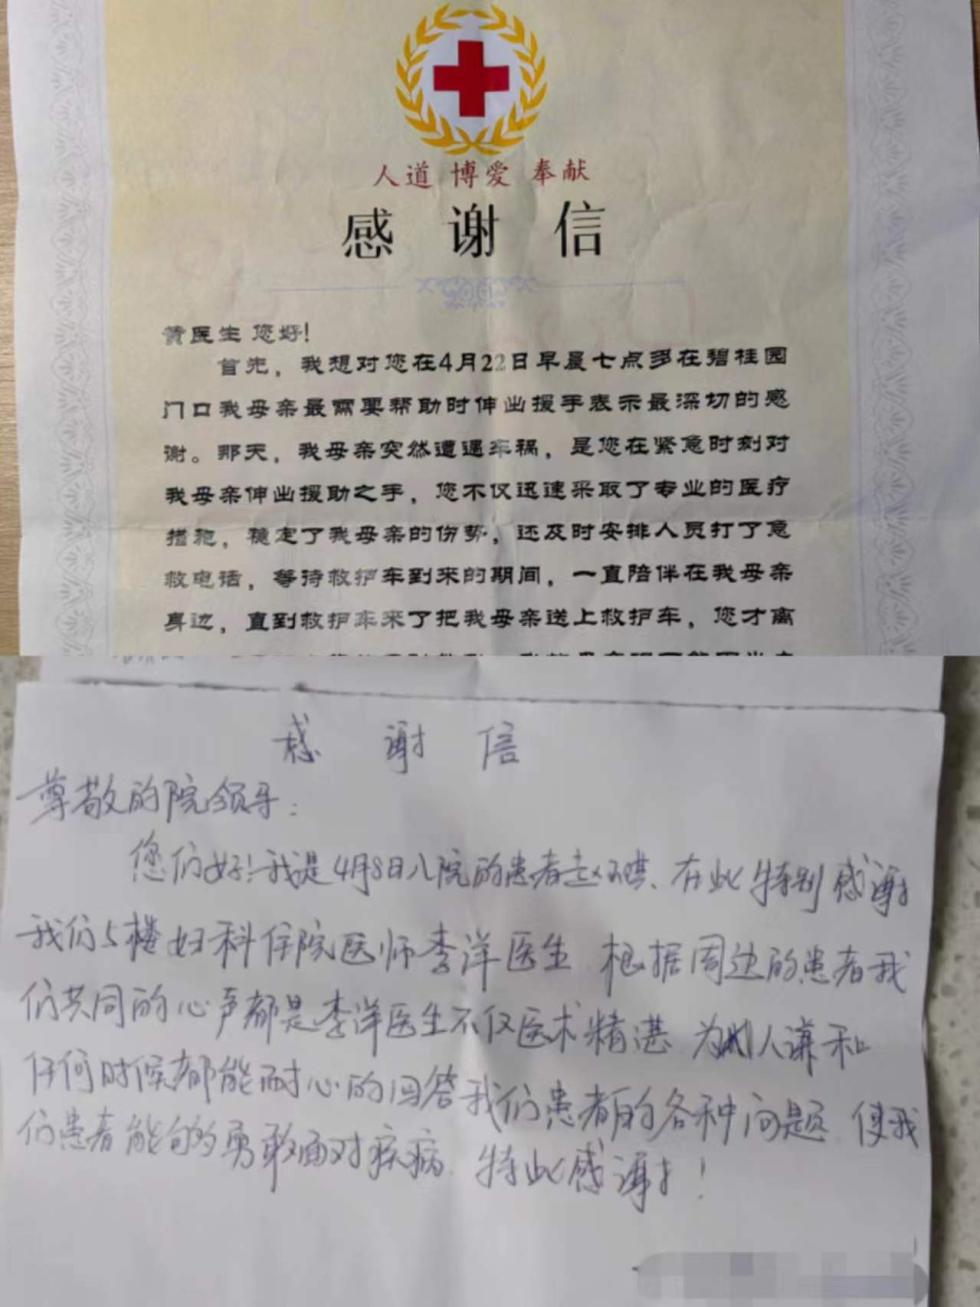 人道 博爱 奉献
感谢信
黄医生 您好!
首先，我想对您在4月22日早晨七点多在碧桂园
门口我母亲最需要帮助时伸出援手表示最深切的感
谢。那天，我母亲突然遭遇车祸，是您在紧急时刻对
我母亲伸出援助之手，您不仅迅速采取了专业的医疗
措施，稳定了我母亲的伤势，还及时安排人员打了急
救电话，等待救护车到来的期间，一直陪伴在我母亲
身边，直到救护车来了把我母亲送上救护车，您才离
感谢信
尊敬的院领导：
您们好!我是4月8日入院的患者赵 在此特别感谢
我们5楼妇科住院医师李洋医生 根据周边的患者我
们共同的心声都是李洋医生不仅医术精湛 为人谦和
任何时候都能耐心的回答我们患者的各种问题 使我
们患者能的勇敢面对疾病 特此感谢!